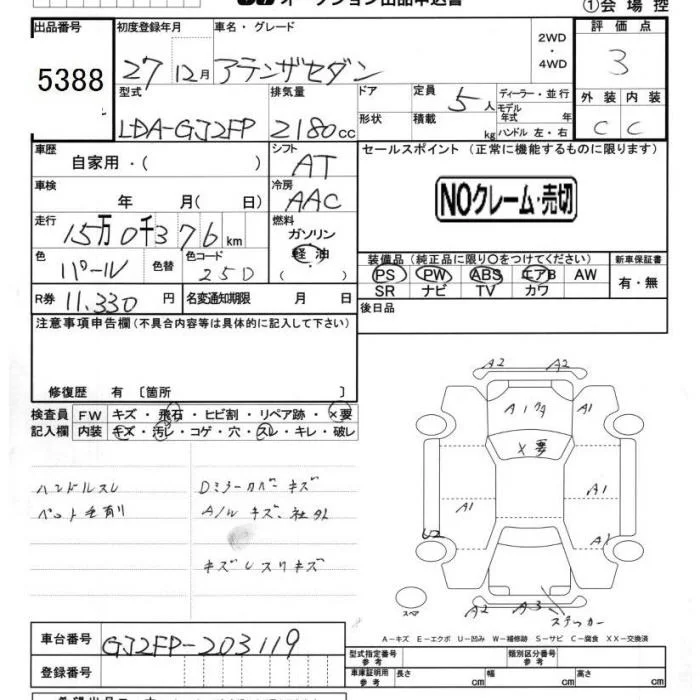 オークション出品申込書
①会場控
出品番号 初度登録年月 車名・グレード 評価点
5388 27 12月 アテンザセダン 2WD・4WD 3
型式 排気量 ドア 定員 5人 ディーラー・並行 外装 内装
LDA-GJ2FP 2180cc 形状 積載 kg モデル年式 年 ハンドル 左・右 C C
車歴 自家用・( ) シフト AT セールスポイント (正常に機能するものに限ります)
車検 年 月( 日) 冷房 AAC NOクレーム・売切
走行 15万0千376km 燃料 ガソリン・軽油・( )
色 パール 色替 色コード 25D 装備品 (純正品に限り○をつけてください) 新車保証書
PS PW ABS エアB AW 有・無
SR ナビ TV カワ
R券 11,330円 名変通知期限 月 日 後日品
注意事項申告欄(不具合内容等は具体的に記入して下さい)
修復歴 有 〔箇所 〕
検査員 FW キズ・飛石・ヒビ割・リペア跡・×要
記入欄 内装 キズ・汚レ・コゲ・穴・スレ・キレ・破レ
ハンドルスレ Dミラーカバーキズ
ペット毛有り A/Wキズ・社外
キズレスリキズ
A2 A2
A1 A1
×要
A1
A1 A1
U2
スペ A2 A3 ステッカー
A-キズ E-エクボ U-凹み W-補修跡 S-サビ C-腐食 XX-交換済
車台番号 GJ2FP-203119
型式指定番号 参考 類別区分番号 参考
登録番号 車庫証明用 参考 長さ cm 幅 cm 高さ cm